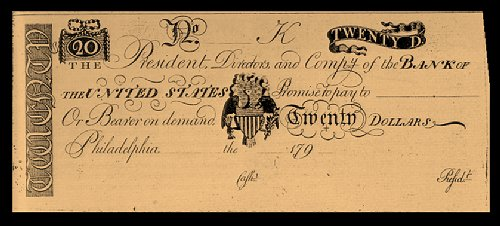 20 No K TWENTY D.
THE President, Directors, and Comp.y of the BANK OF
THE UNITED STATES Promise to pay to
Or Bearer on demand, Twenty DOLLARS
Philadelphia the 179
Cash.r Presid.t
TWENTY